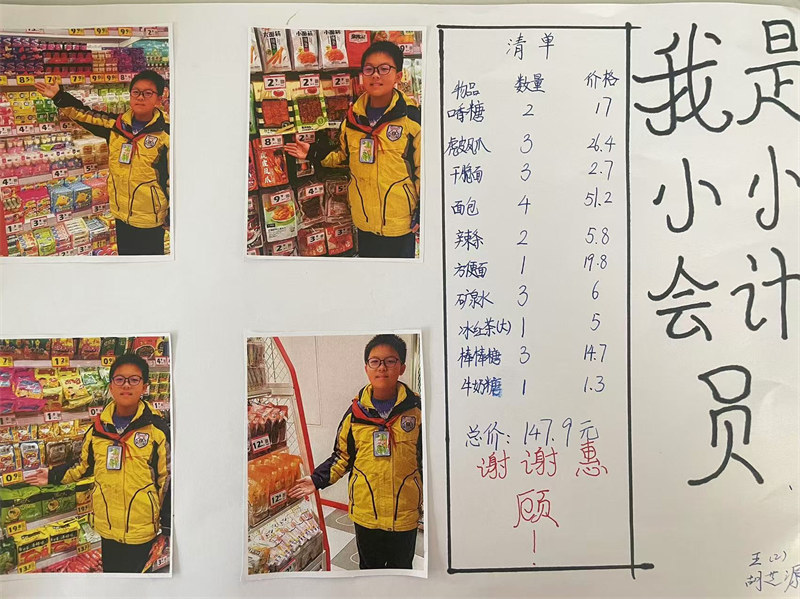 清单
物品 数量 价格
口香糖 2 17
虎皮凤爪 3 26.4
干脆面 3 2.7
面包 4 51.2
辣条 2 5.8
方便面 1 19.8
矿泉水 3 6
冰红茶(大) 1 5
棒棒糖 3 14.7
牛奶糖 1 1.3
总价:147.9元
谢谢惠
顾
!
我是
小小
会计
员
五(2)
胡芝源